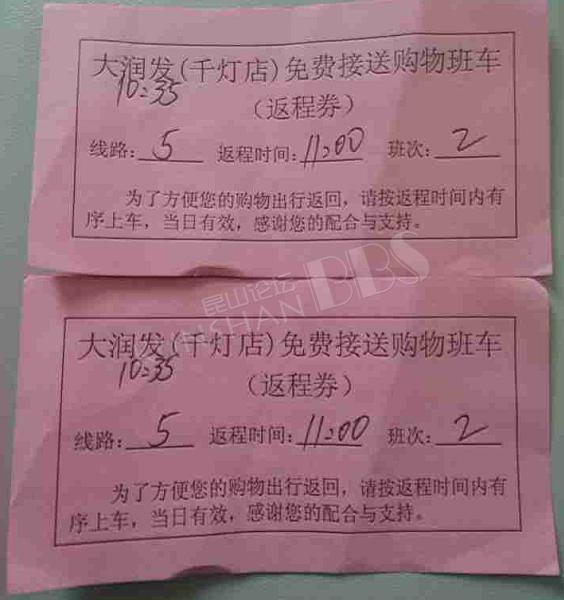 大润发(千灯店)免费接送购物班车
10:35
(返程券)
线路: 5 返程时间: 11:00 班次: 2
为了方便您的购物出行返回，请按返程时间内有
序上车，当日有效，感谢您的配合与支持。
昆山论坛
SHAN BBS
大润发(千灯店)免费接送购物班车
10:35
(返程券)
线路: 5 返程时间: 11:00 班次: 2
为了方便您的购物出行返回，请按返程时间内有
序上车，当日有效，感谢您的配合与支持。